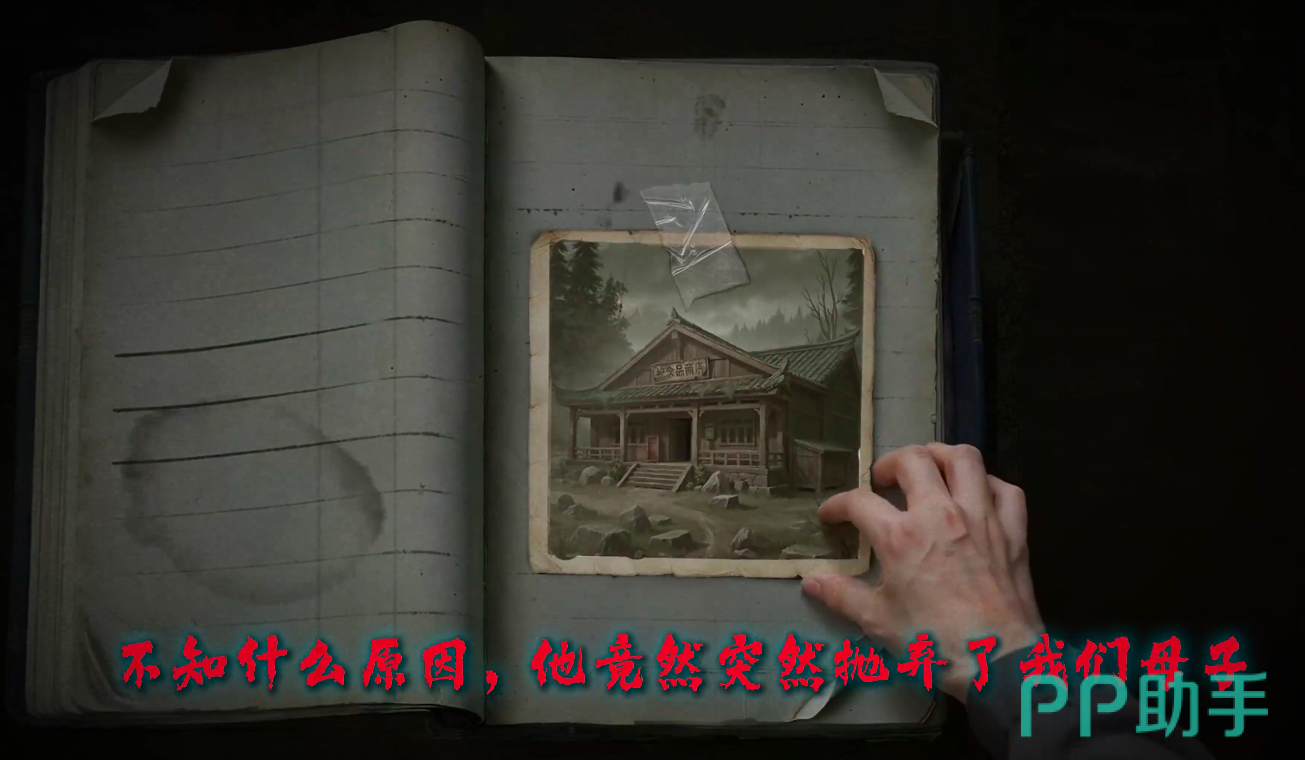 不知什么原因，他竟然突然抛弃了我们母子
PP助手